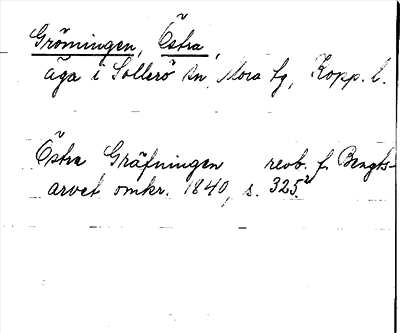 Grömingen, Östra,
äga i Sollerö sn, Mora tg, Kopp. l.
Östra Gräfningen reob. f. Bengts-
arvet omkr. 1840, s. 325²